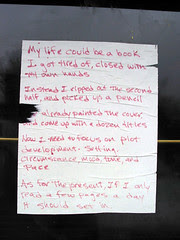 My life could be a book
I got tired of, closed with
my own hands
Instead I flipped at the second
half, and picked up a pencil
already painted the cover
and come up with a dozen titles
Now I need to focus on plot
development. Setting,
circumstance, mood, tone, and
Place
As for the present, If I only
read a few pages a day
It should